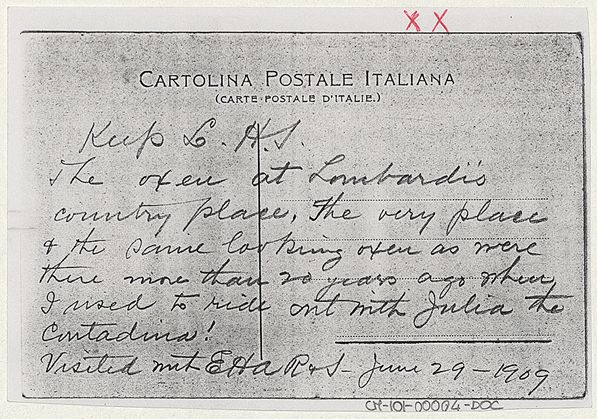 X X
CARTOLINA POSTALE ITALIANA
(CARTE POSTALE D'ITALIE.)
Keep L. H. S.
The oxen at Lombardi's
country place. The very place
& the same looking oxen as were
there more than 20 years ago when
I used to ride out with Julia the
Contadina!
Visited with Etta R & S - June 29 - 1909
CM-101-00004-DOC